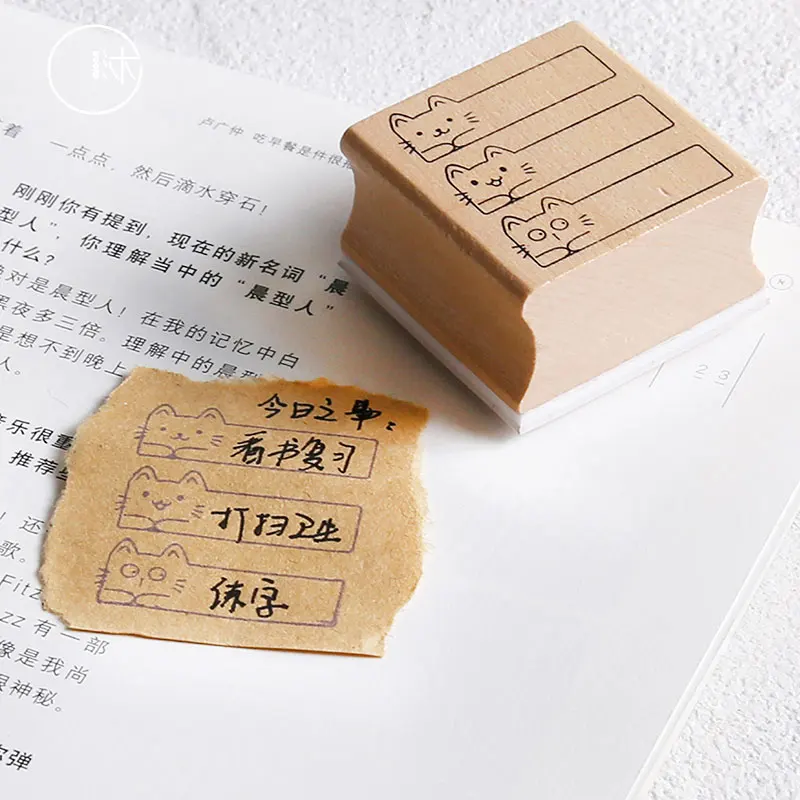 沐
卢广仲 吃早餐是件很
着 一点点，然后滴水穿石！
刚刚你有提到，现在的新名词“晨
型人”，你理解当中的“晨型人”
什么？
对是晨型人！在我的记忆中白
黑夜多三倍。理解中的晨型
是想不到晚上
人。
音乐很重
推荐
还
歌。
Fitz
zz 有一部
像是我尚
很神秘。
弹
23
今日之事：
看书复习
打扫卫生
练字